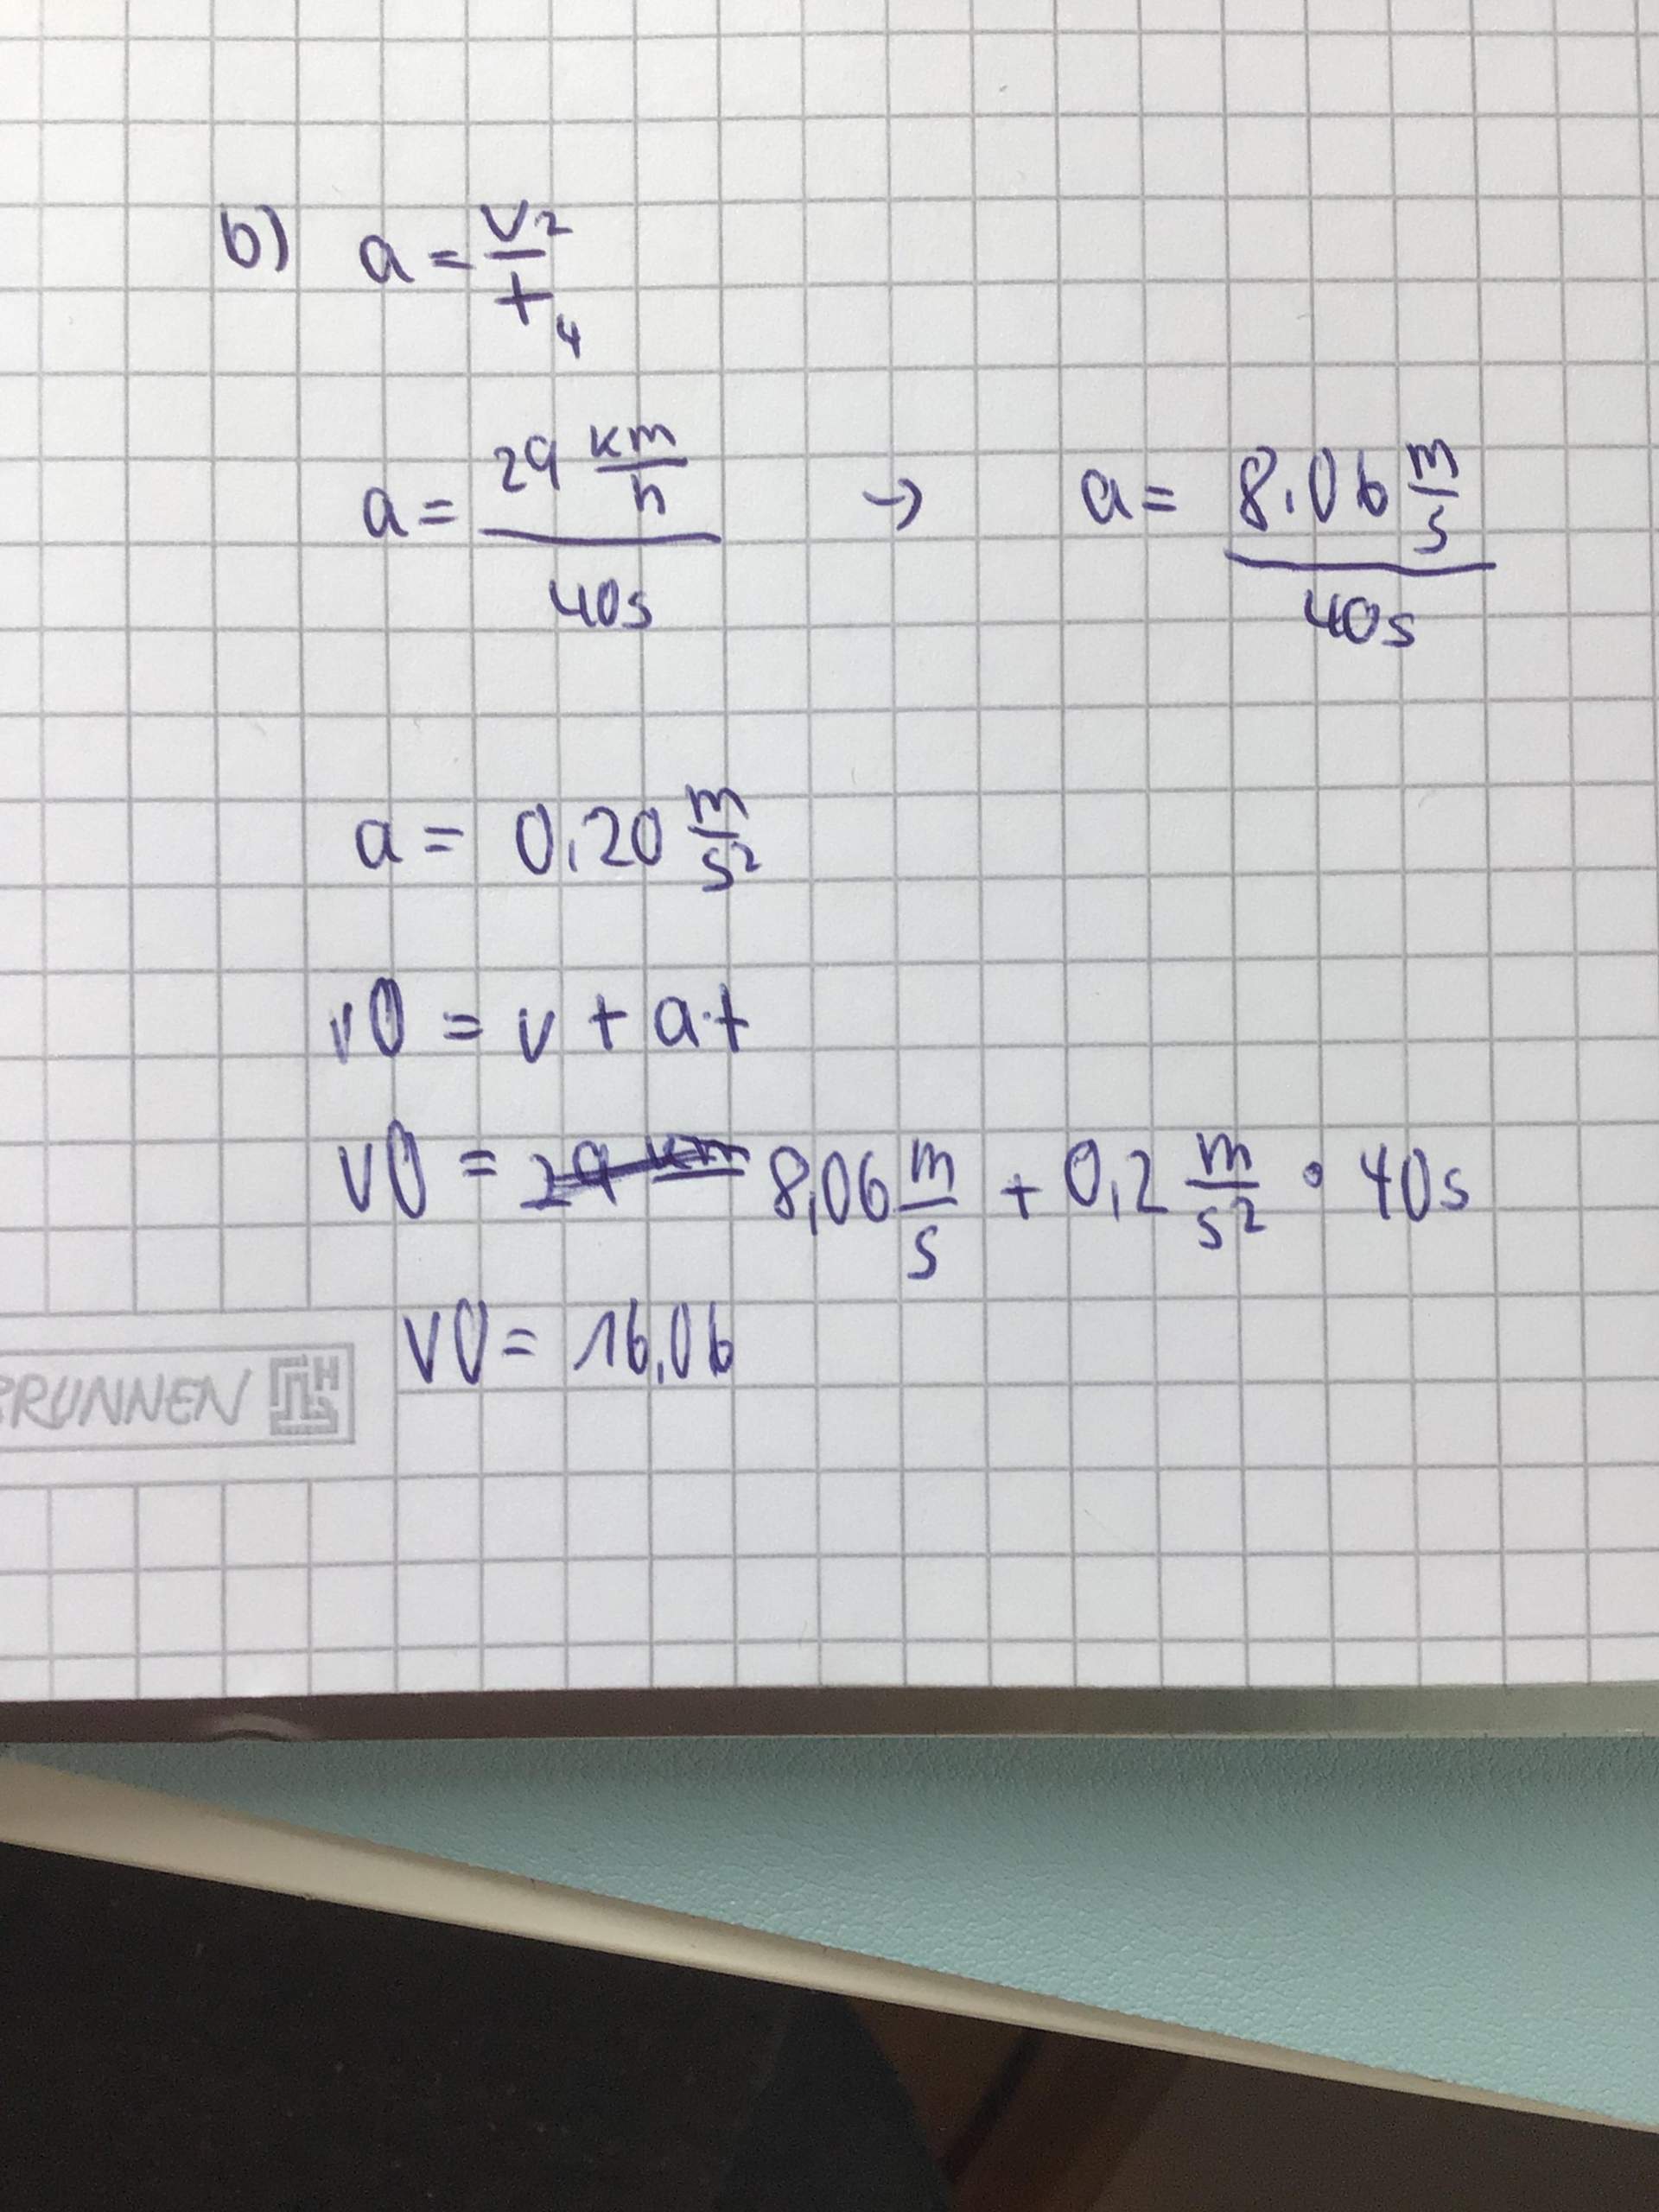 b) a = v2/t4
a = 29 km/h / 40s → a = 8,06 m/s / 40s
a = 0,20 m/s²
v0 = v + a·t
v0 = 29 km 8,06 m/s + 0,2 m/s² • 40s
v0 = 16,06
BRUNNEN